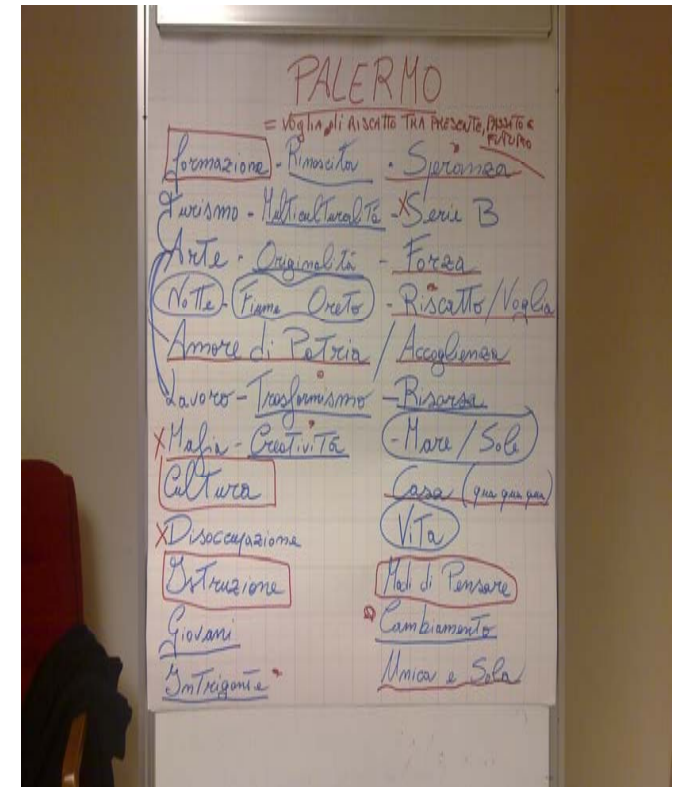 PALERMO
= VOGLIA di RISCATTO TRA PRESENTE, PASSATO e
FUTURO
formazione - Rinascita - Speranza
Turismo - Multiculturalità - X Serie B
Arte - Originalità - Forza
Notte - Fiume Oreto - Riscatto/Voglia
Amore di Patria / Accoglienza
Lavoro - Trasformismo - Risorsa
X Mafia - Creatività - Mare / Sole
Cultura Casa (qua qua qua)
X Disoccupazione Vita
Istruzione Modi di Pensare
Giovani Cambiamento
Intrigante Unica e Sola